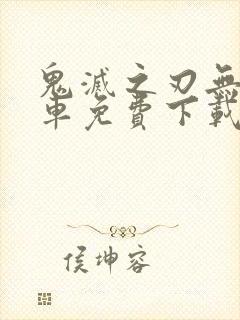 鬼滅之刃無
車免費下載
侯坤容